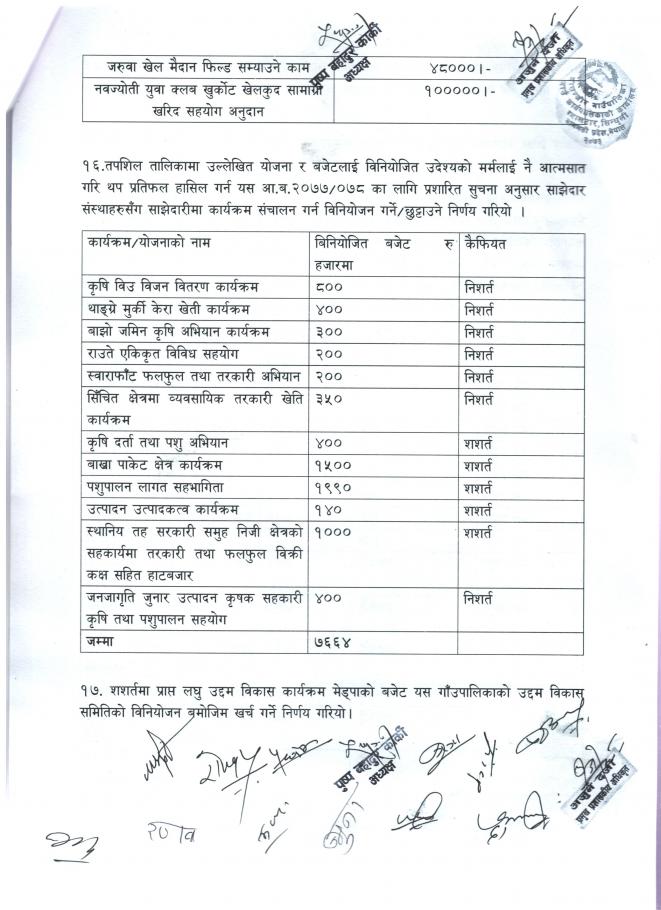 पुष्प बहादुर कार्की
अध्यक्ष
जरुवा खेल मैदान फिल्ड सम्याउने काम ४८०००।-
नवज्योती युवा क्लब खुर्कोट खेलकुद सामाग्री १०००००।-
खरिद सहयोग अनुदान
१६.तपशिल तालिकामा उल्लेखित योजना र बजेटलाई विनियोजित उदेश्यको मर्मलाई नै आत्मसात
गरि थप प्रतिफल हासिल गर्न यस आ.ब.२०७७/०७८ का लागि प्रशारित सुचना अनुसार साझेदार
संस्थाहरुसँग साझेदारीमा कार्यक्रम संचालन गर्न विनियोजन गर्ने/छुट्टाउने निर्णय गरियो ।
कार्यक्रम/योजनाको नाम बिनियोजित बजेट रु कैफियत
हजारमा
कृषि विउ विजन वितरण कार्यक्रम ८०० निशर्त
थाङ्ग्रे मुर्की केरा खेती कार्यक्रम ४०० निशर्त
बाझो जमिन कृषि अभियान कार्यक्रम ३०० निशर्त
राउते एकिकृत विविध सहयोग २०० निशर्त
स्वाराफाँट फलफुल तथा तरकारी अभियान २०० निशर्त
सिँचित क्षेत्रमा व्यवसायिक तरकारी खेति ३५० निशर्त
कार्यक्रम
कृषि दर्ता तथा पशु अभियान ४०० शशर्त
बाख्रा पाकेट क्षेत्र कार्यक्रम १५०० शशर्त
पशुपालन लागत सहभागिता १९९० शशर्त
उत्पादन उत्पादकत्व कार्यक्रम १४० शशर्त
स्थानिय तह सरकारी समुह निजी क्षेत्रको १००० शशर्त
सहकार्यमा तरकारी तथा फलफुल बिक्री
कक्ष सहित हाटबजार
जनजागृति जुनार उत्पादन कृषक सहकारी ४०० निशर्त
कृषि तथा पशुपालन सहयोग
जम्मा ७६६४
१७. शशर्तमा प्राप्त लघु उद्दम विकास कार्यक्रम मेड्पाको बजेट यस गाँउपालिकाको उद्दम विकास
समितिको विनियोजन बमोजिम खर्च गर्ने निर्णय गरियो।
पुष्प बहादुर कार्की
अध्यक्ष
प्रमुख प्रशासकीय अधिकृत